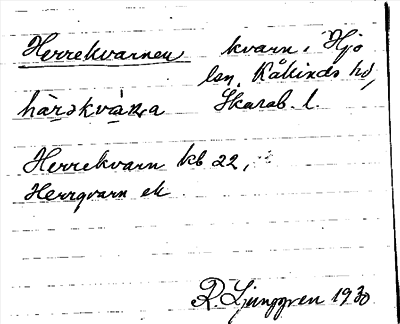 Herrekvarnen kvarn i Hjo
lsn, Kåkinds hd,
hàrəkvàṇa Skarab. l.
Herrekvarn kb 22,
Herrqvarn ek
R. Ljunggren 1930